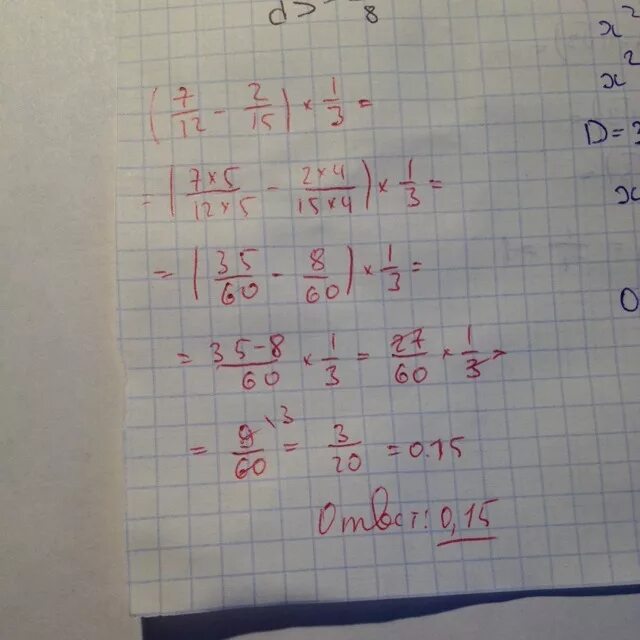 d > 8
x²
( 7/12 - 2/15 ) × 1/3 =
x²
D = 3
= ( 7×5/12×5 - 2×4/15×4 ) × 1/3 =
x
= ( 35/60 - 8/60 ) × 1/3 =
0
= 35-8/60 × 1/3 = 27/60 × 1/3 =
= 9\3/60 = 3/20 = 0.15
Ответ: 0,15